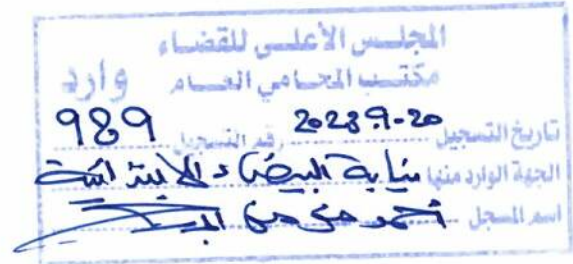 المجلس الأعلى للقضاء
مكتب المحامي العام
وارد
تاريخ التسجيل 20-9-2023 رقم التسجيل 989
الجهة الوارد منها نيابة البيضاء الابتدائية
اسم المسجل أحمد